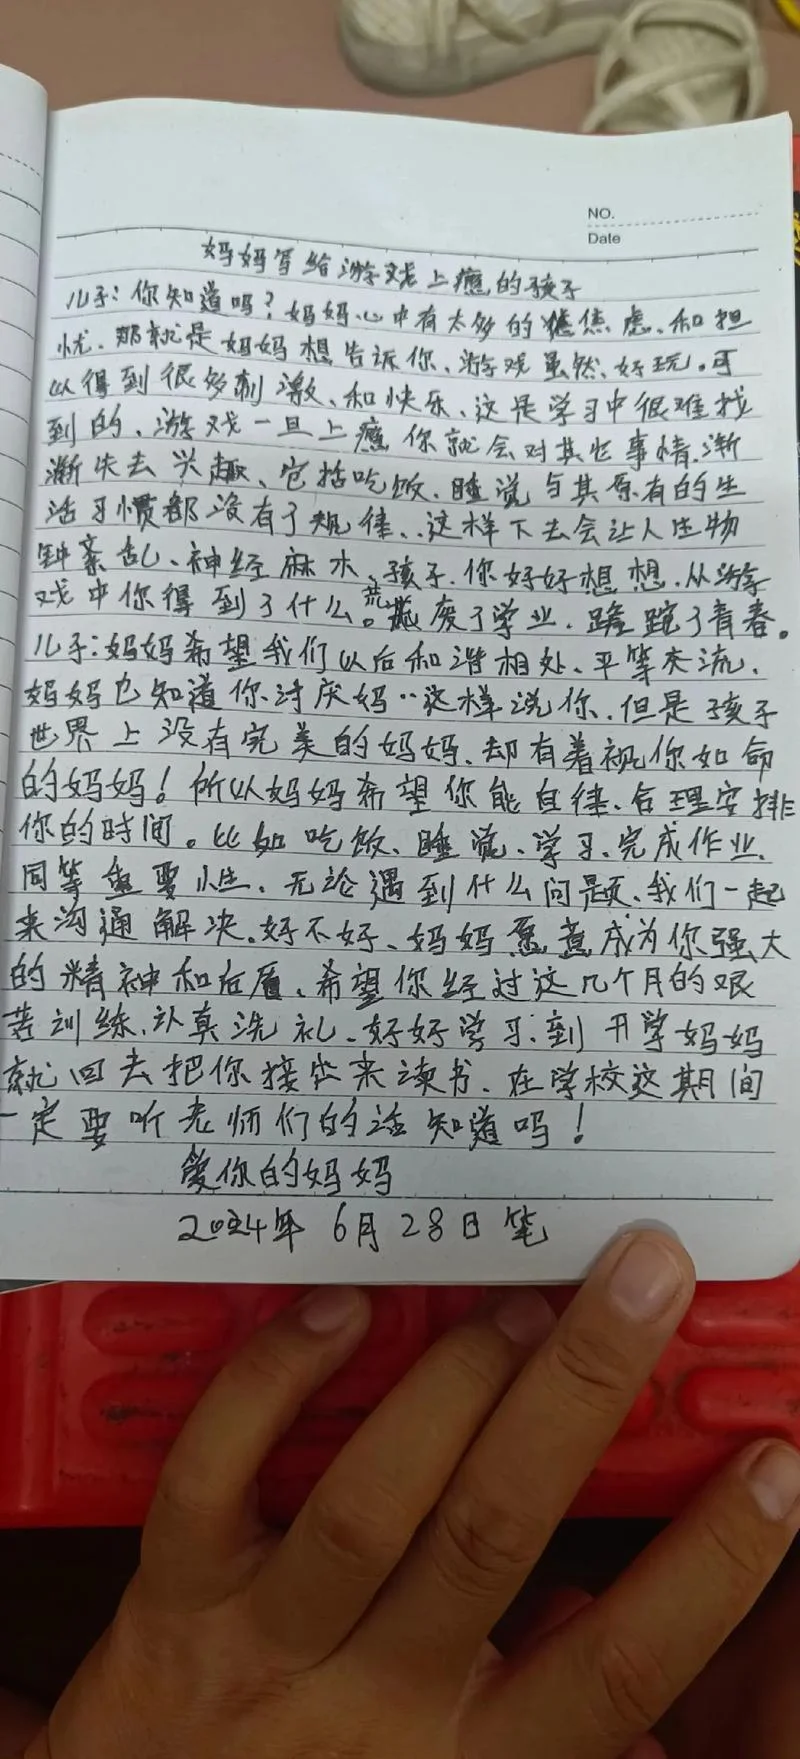 NO.
Date
妈妈写给游戏上瘾的孩子
儿子：你知道吗？妈妈心中有太多的焦虑、和担
忧、那就是妈妈想告诉你、游戏虽然、好玩。可
以得到很多刺激、和快乐、这是学习中很难找
到的、游戏一旦上瘾你就会对其他事情、渐
渐失去兴趣、包括吃饭、睡觉与其原有的生
活习惯都没有了规律、、这样下去会让人生物
钟紊乱、神经麻木、孩子、你好好想想、从游
戏中你得到了什么。荒废了学业、蹉跎了青春。
儿子：妈妈希望我们以后和谐相处、平等交流、
妈妈也知道你、讨厌妈‥这样说你、但是孩子
世界上没有完美的妈妈、却有着视你如命
的妈妈！所以妈妈希望你能自律、合理安排
你的时间。比如吃饭、睡觉、学习、完成作业、
同等重要性、无论遇到什么问题、我们一起
来沟通解决。好不好、妈妈愿意成为你强大
的精神和后盾、希望你经过这几个月的艰
苦训练、认真洗礼、好好学习、到开学妈妈
就回去把你接出来读书、在学校这期间
一定要听老师们的话知道吗！
爱你的妈妈
2024年6月28日笔